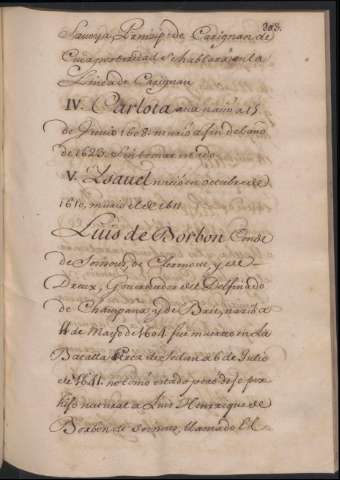 303.
Saboya, Principe de Carignan de
Cuya posteridad se hablará en la
Linea de Carignan
IV. Carlota Ana nació a 15
de Junio 1608. murió a fin del año
de 1623. sin tomar estado
V. Ysavel nació en octubre de
1610, murió el de 1611
Luis de Borbon Conde
de Soisons, de Clermont, y de
Dreux, Governador del Delfinado
de Champaña y de Brie, nació a
11 de Mayo de 1604. fue muerto en la
Batalla cerca de Sedan a 6 de Julio
de 1641. no tomó estado pero dejó por
hijo natural a Luis Henrique de
Borbon de Soisons, llamado El